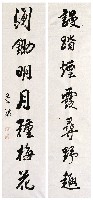 謾踏煙霞尋野趣
閒鋤明月種梅花